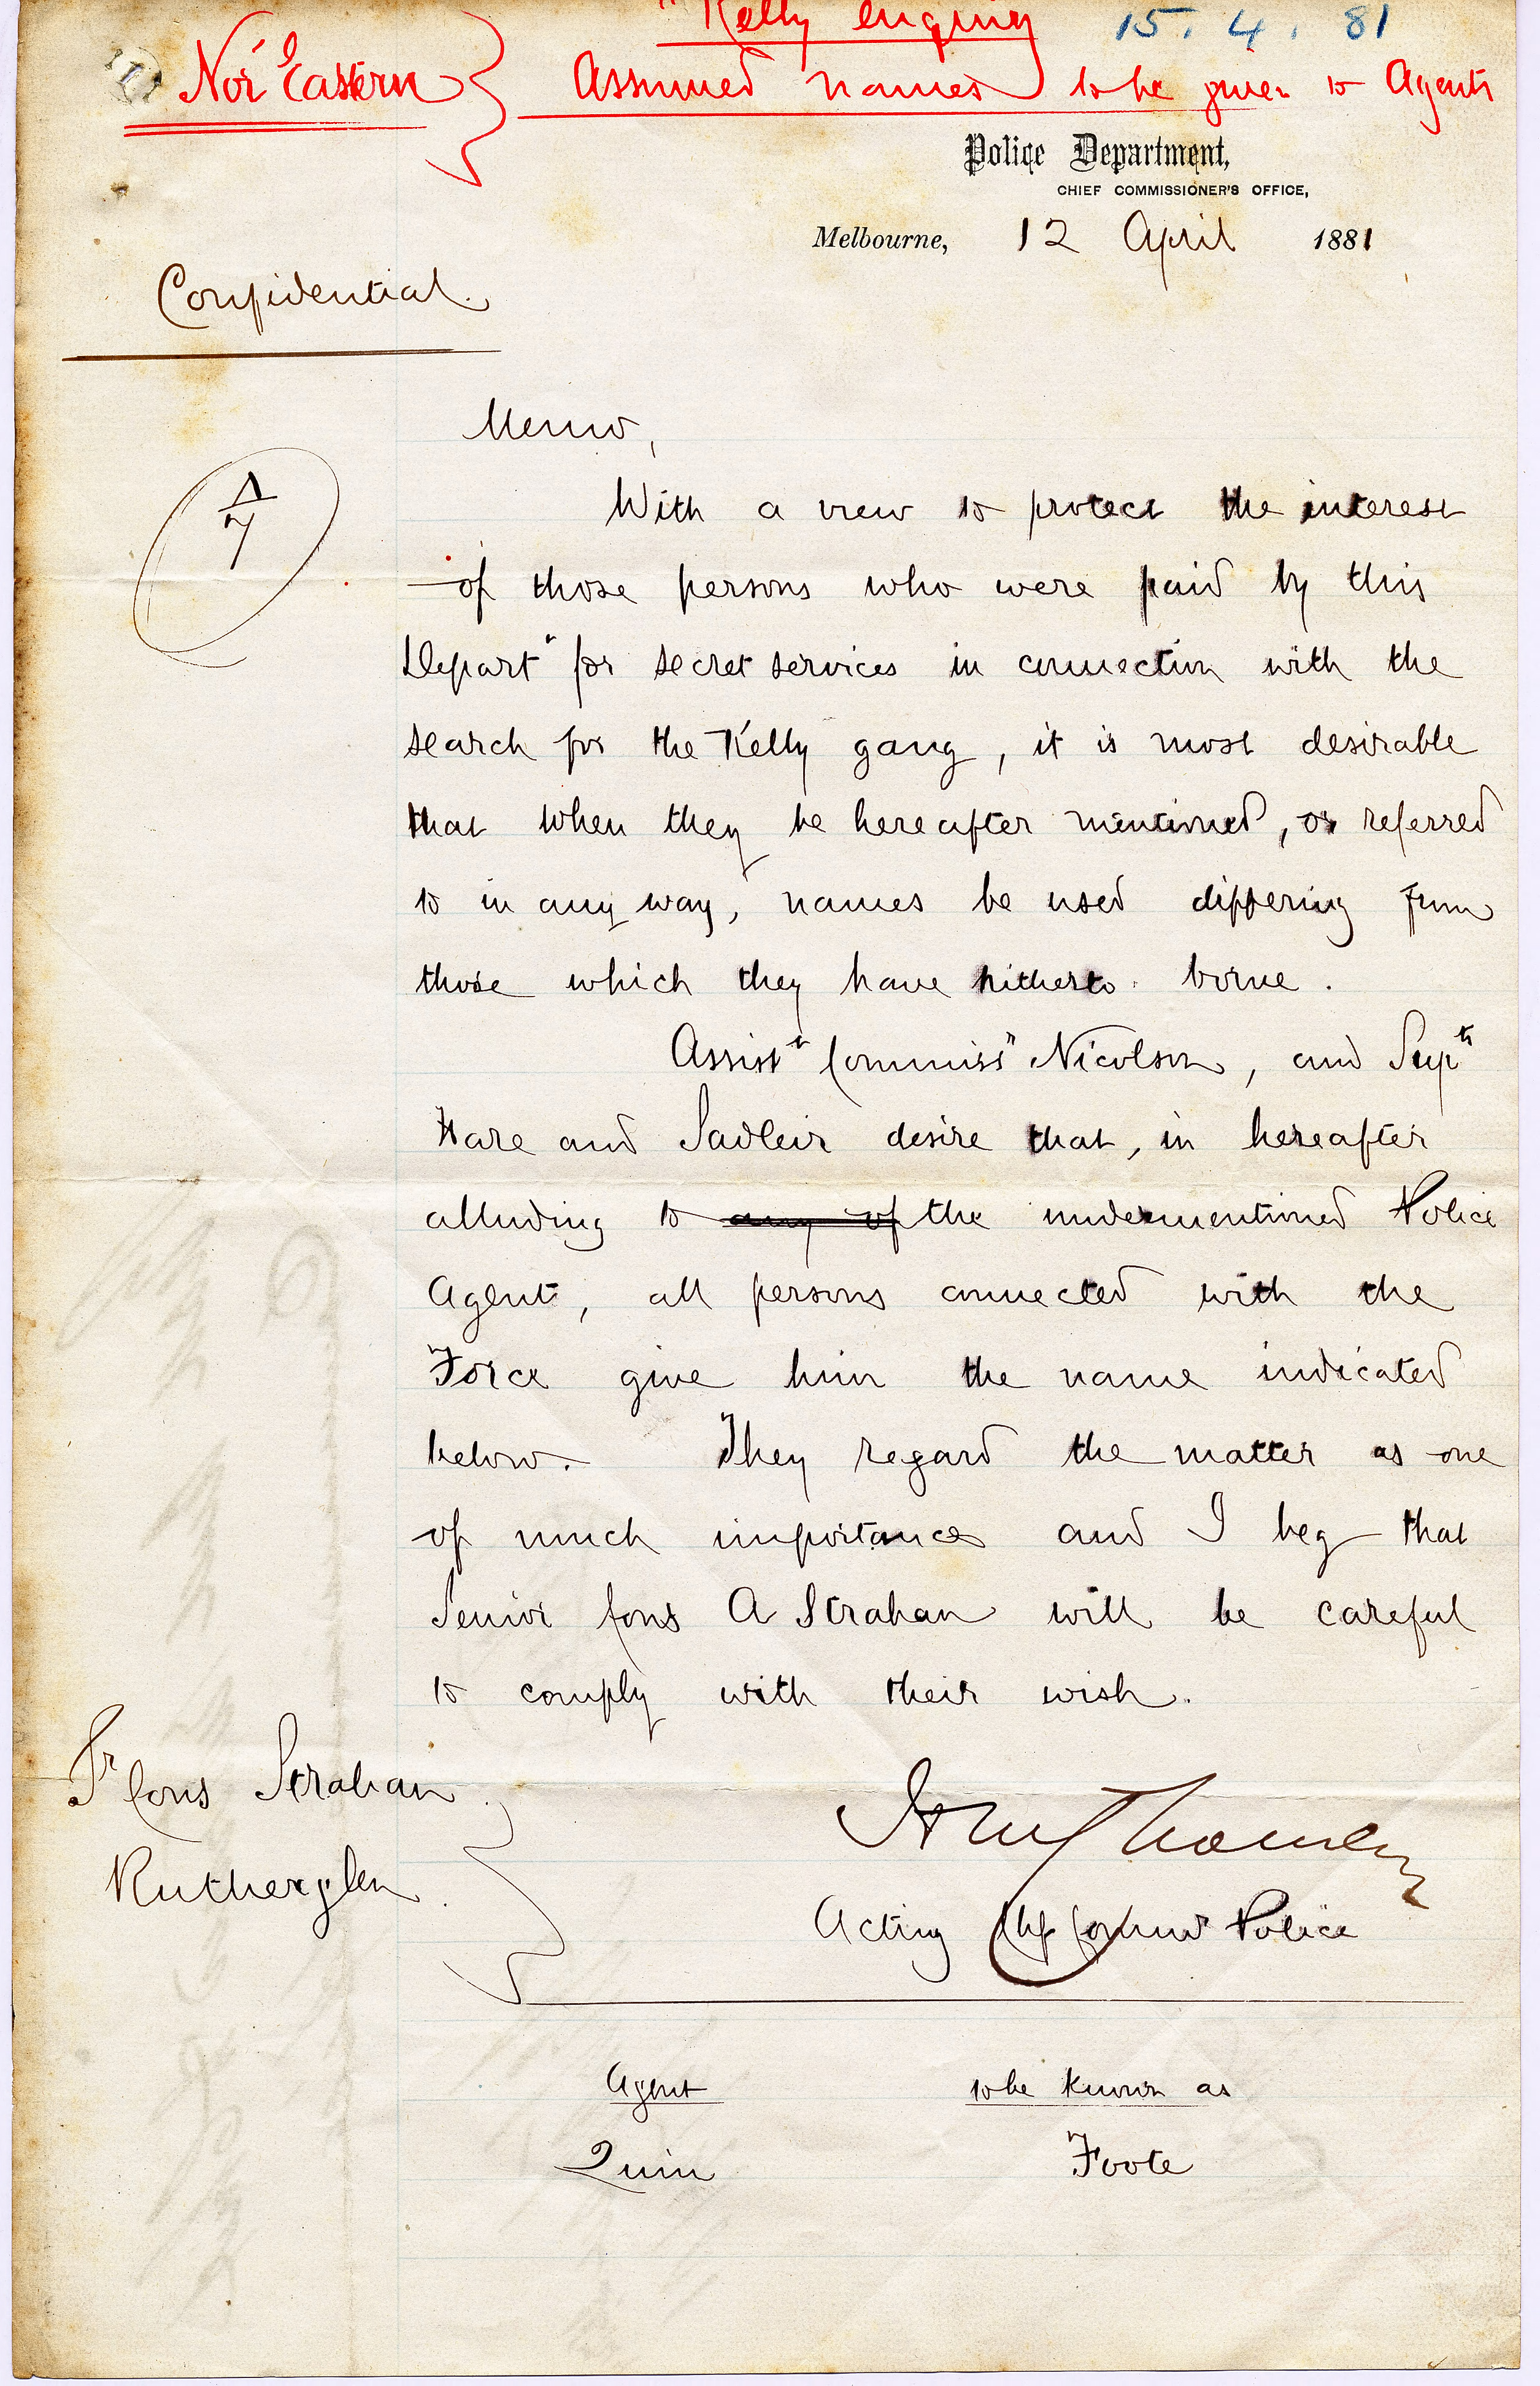 "Kelly enquiry 15. 4. 81
Nor' Eastern } Assumed names to be given to Agents
Police Department,
CHIEF COMMISSIONER'S OFFICE,
Melbourne, 12 April 1881
Confidential.
Memo,
With a view to protect the interest
of those persons who were paid by this
Depart^t for secret services in connection with the
search for the Kelly gang, it is most desirable
that when they be hereafter mentioned, or referred
to in any way, names be used differing from
those which they have hitherto borne.
Assist^t Commiss^r Nicolson, and Sup^ts
Hare and Sadleir desire that, in hereafter
alluding to any of the undermentioned Police
Agent, all persons connected with the
Force give him the name indicated
below. They regard the matter as one
of much importance and I beg that
Senior Cons A Strahan will be careful
to comply with their wish.
S^r Cons Strahan
Rutherglen
Acting Chf Commr Police
Agent to be known as
Quin Foote